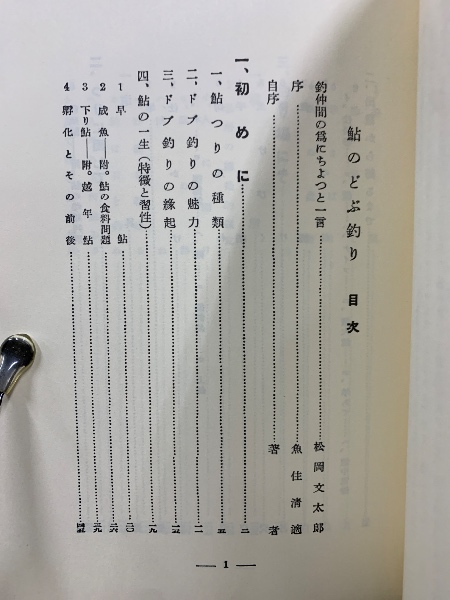 鮎のどぶ釣り 目次
釣仲間の爲にちよつと一言 松岡文太郎
序 魚住清適
自序 著者
一、初めに 二
一、鮎つりの種類 五
二、ドブ釣りの魅力 一一
三、ドブ釣りの緣起 一五
四、鮎の一生(特徵と習性) 一九
1 早鮎 二〇
2 成魚——附。鮎の食料問題 二六
3 下り鮎——附。越年鮎 二九
4 孵化とその前後
— 1 —